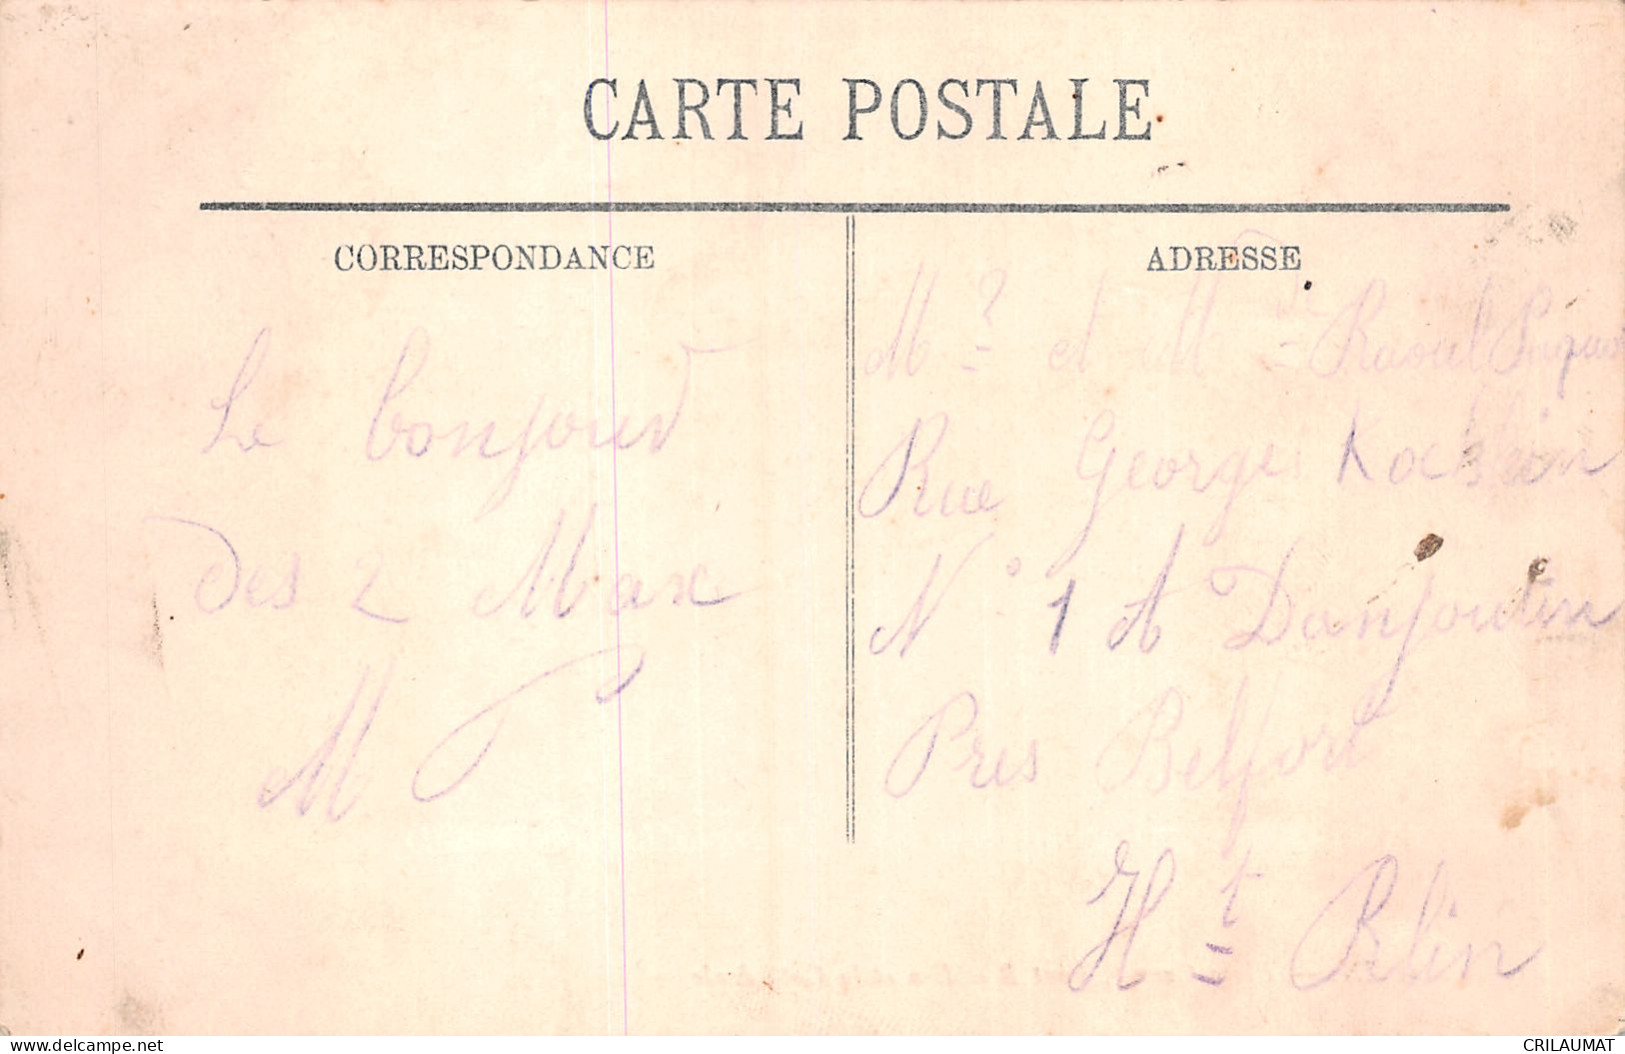 CARTE POSTALE
CORRESPONDANCE
Le bonjour
des 2 Max
M
ADRESSE
Mr et Mme Raoul
Rue Georges Kochlin
N° 1 A Danjoutin
Pres Belfort
Ht Rhin
CRILAUMAT
delcampe.net